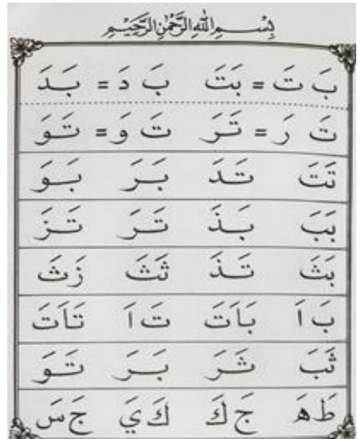 بِسْمِ اللهِ الرَّحْمٰنِ الرَّحِيْمِ
بَ تَ = بَتَ بَ دَ = بَدَ
تَ رَ = تَرَ تَ وَ = تَوَ
تَتَ تَدَ بَرَ بَوَ
بَبَ بَذَ تَرَ تَزَ
بَثَ تَذَ ثَثَ زَثَ
بَ اَ بَاَتَ تَ اَ تَاَتَ
ثَبَ ثَرَ بَرَ تَوَ
طَ هَ جَ كَ كَ يَ جَ سَ